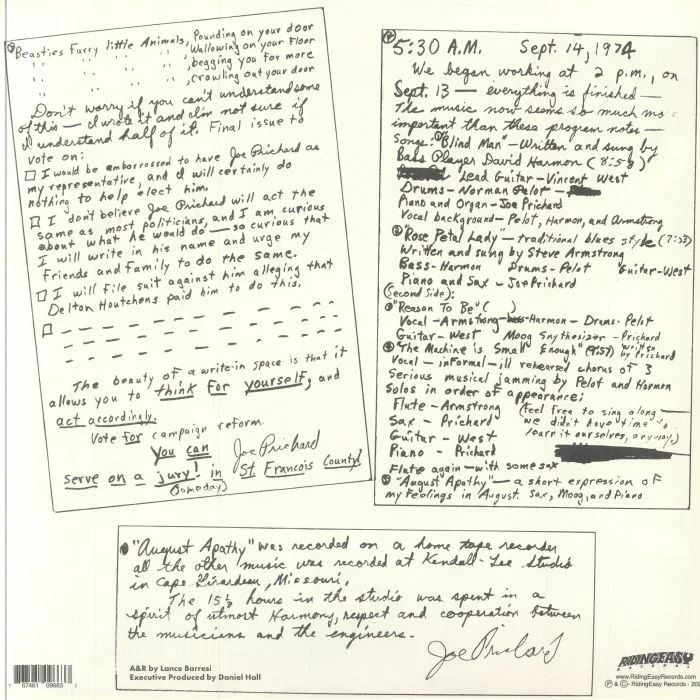 Beasties Furry little Animals, Pounding on your door
" " " " , Wallowing on your Floor
" " " " , begging you for more
" " " " , crawling out your door
Don't worry if you can't understand some
of this — I wrote it and I'm not sure if
I understand half of it. Final issue to
vote on:
□ I would be embarrossed to have Joe Prichard as
my representative, and I will certainly do
nothing to help elect him.
□ I don't believe Joe Prichard will act the
same as most politicians, and I am curious
about what he would do — so curious that
I will write in his name and urge my
Friends and Family to do the same.
□ I will file suit against him alleging that
Delton Houtchens paid him to do this.
□
The beauty of a write-in space is that it
allows you to think for yourself, and
act accordingly.
Vote for campaign reform.
You can Joe Prichard
serve on a jury! in St Francois County
(someday)
5:30 A.M. Sept. 14, 1974
We began working at 2 p.m., on
Sept. 13 — everything is finished —
The music now seems so much mo
important than these program notes —
Songs: "Blind Man" — Written and sung by
Bass Player David Harmon (8:59)
Lead Guitar — Vincent West
Drums — Norman Pelot —
Piano and Organ — Joe Prichard
Vocal background — Pelot, Harmon, and Armstrong
"Rose Petal Lady" — traditional blues style (7:53)
Written and sung by Steve Armstrong
Bass - Harmon Drums - Pelot Guitar - West
Piano and Sax — Joe Prichard
(second side):
"Reason To Be" ( )
Vocal — Armstrong - Bass - Harmon — Drums - Pelot
Guitar - West Moog Snythesizer - Prichard
"The Machine is Small Enough" (9:57) written by Prichard
Vocal — inFormal — ill rehearsed chorus of 3
Serious musical jamming by Pelot and Harmon
Solos in order of appearance:
Flute - Armstrong (feel free to sing along —
Sax - Prichard we didn't have time to
Guitar - West learn it ourselves, anyway.)
Piano - Prichard
Flute again — with some sax
"August Apathy" — a short expression of
my feelings in August. Sax, Moog, and Piano
"August Apathy" was recorded on a home tape recorder
all the other music was recorded at Kendall-Lee Studio
in Cape Girardeau, Missouri.
The 15½ hours in the studio was spent in a
spirit of utmost Harmony, respect and cooperation between
the musicians and the engineers.
Joe Prichard
A&R by Lance Barresi
Executive Produced by Daniel Hall
7 67461 09663 7
RIDINGEASY
RECORDS
www.RidingEasyRecords.com
℗ & © - RidingEasy Records - 202